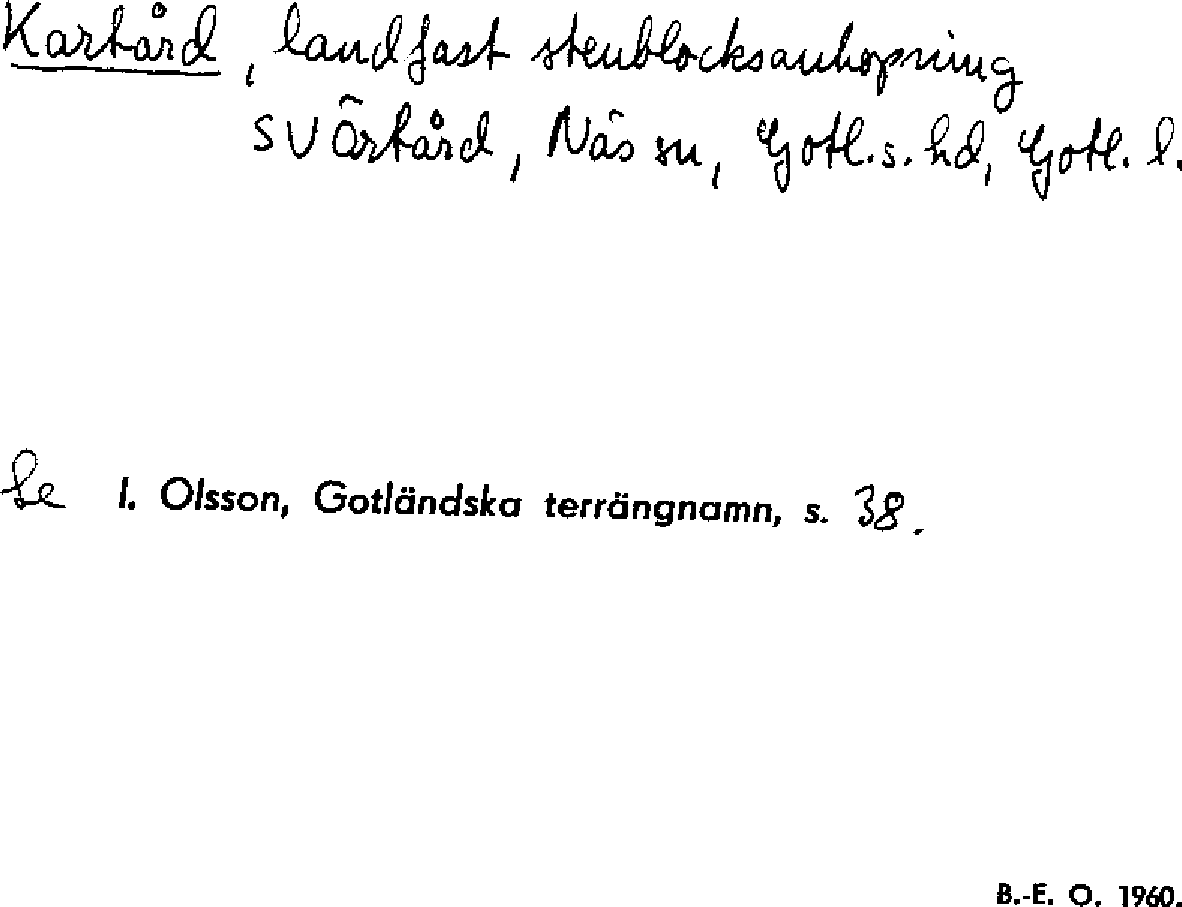 Kartård, landfast stenblocksanhopning
SV Örtård, Näs sn, Gotl.s. hd, Gotl. l.
Se I. Olsson, Gotländska terrängnamn, s. 38.
B.-E. O. 1960.